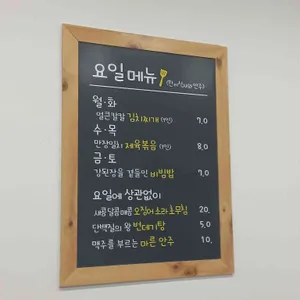 요일메뉴 (한 식사와 안주)
월·화
얼큰칼칼 김치찌개 (1인) 7.0
수·목
만장일치 제육볶음 (1인) 8.0
금·토
강된장을 곁들인 비빔밥 7.0
요일에 상관없이
새콤달콤매콤 오징어소라초무침 20.
단백질의 왕 번데기탕 5.0
맥주를 부르는 마른 안주 10.